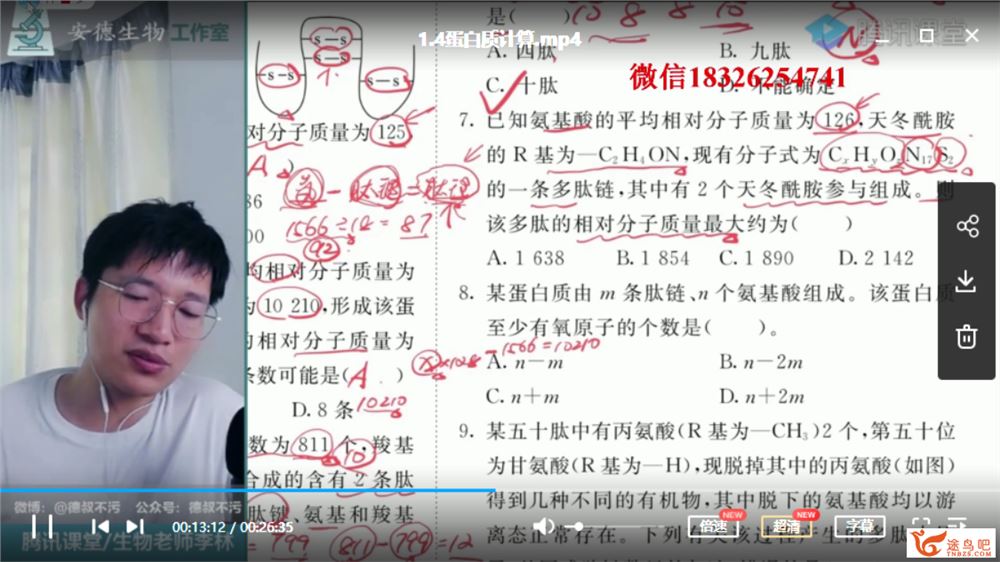 安德生物工作室
1.4蛋白质计算.mp4
腾讯课堂
是( )
A. 四肽
B. 九肽
微信18326254741
C. 十肽
D. 不能确定
7. 已知氨基酸的平均相对分子质量为 126,天冬酰胺
的 R 基为—C₂H₄ON,现有分子式为 CₓHᵧO N₁₇S₂
的一条多肽链,其中有 2 个天冬酰胺参与组成。则
该多肽的相对分子质量最大约为( )
A. 1 638 B. 1 854 C. 1 890 D. 2 142
8. 某蛋白质由 m 条肽链、n 个氨基酸组成。该蛋白质
至少有氧原子的个数是( )。
A. n－m
B. n－2m
C. n＋m
D. n＋2m
9. 某五十肽中有丙氨酸(R 基为—CH₃)2 个,第五十位
为甘氨酸(R 基为—H),现脱掉其中的丙氨酸(如图)
得到几种不同的有机物,其中脱下的氨基酸均以游
离态正常存在。下列有关该过程产生的多肽
—s—s—
—s—s—
—s—s—
s—s—
对分子质量为 125
A )
86
肽键
1566÷18=87
92
00
均相对分子质量为
为 10 210,形成该蛋
的相对分子质量为
条数可能是( A )
-1566=10210
D. 8 条
10210
数为 811 个,羧基
10
合成的含有 2 条肽
肽键、氨基和羧基
= 799 811-799=12
微博：@德叔不污 公众号：德叔不污
00:13:12 / 00:26:35
倍速
NEW
超清
NEW
字幕
腾讯课堂/生物老师李林
途鸟吧
TNBZS.COM